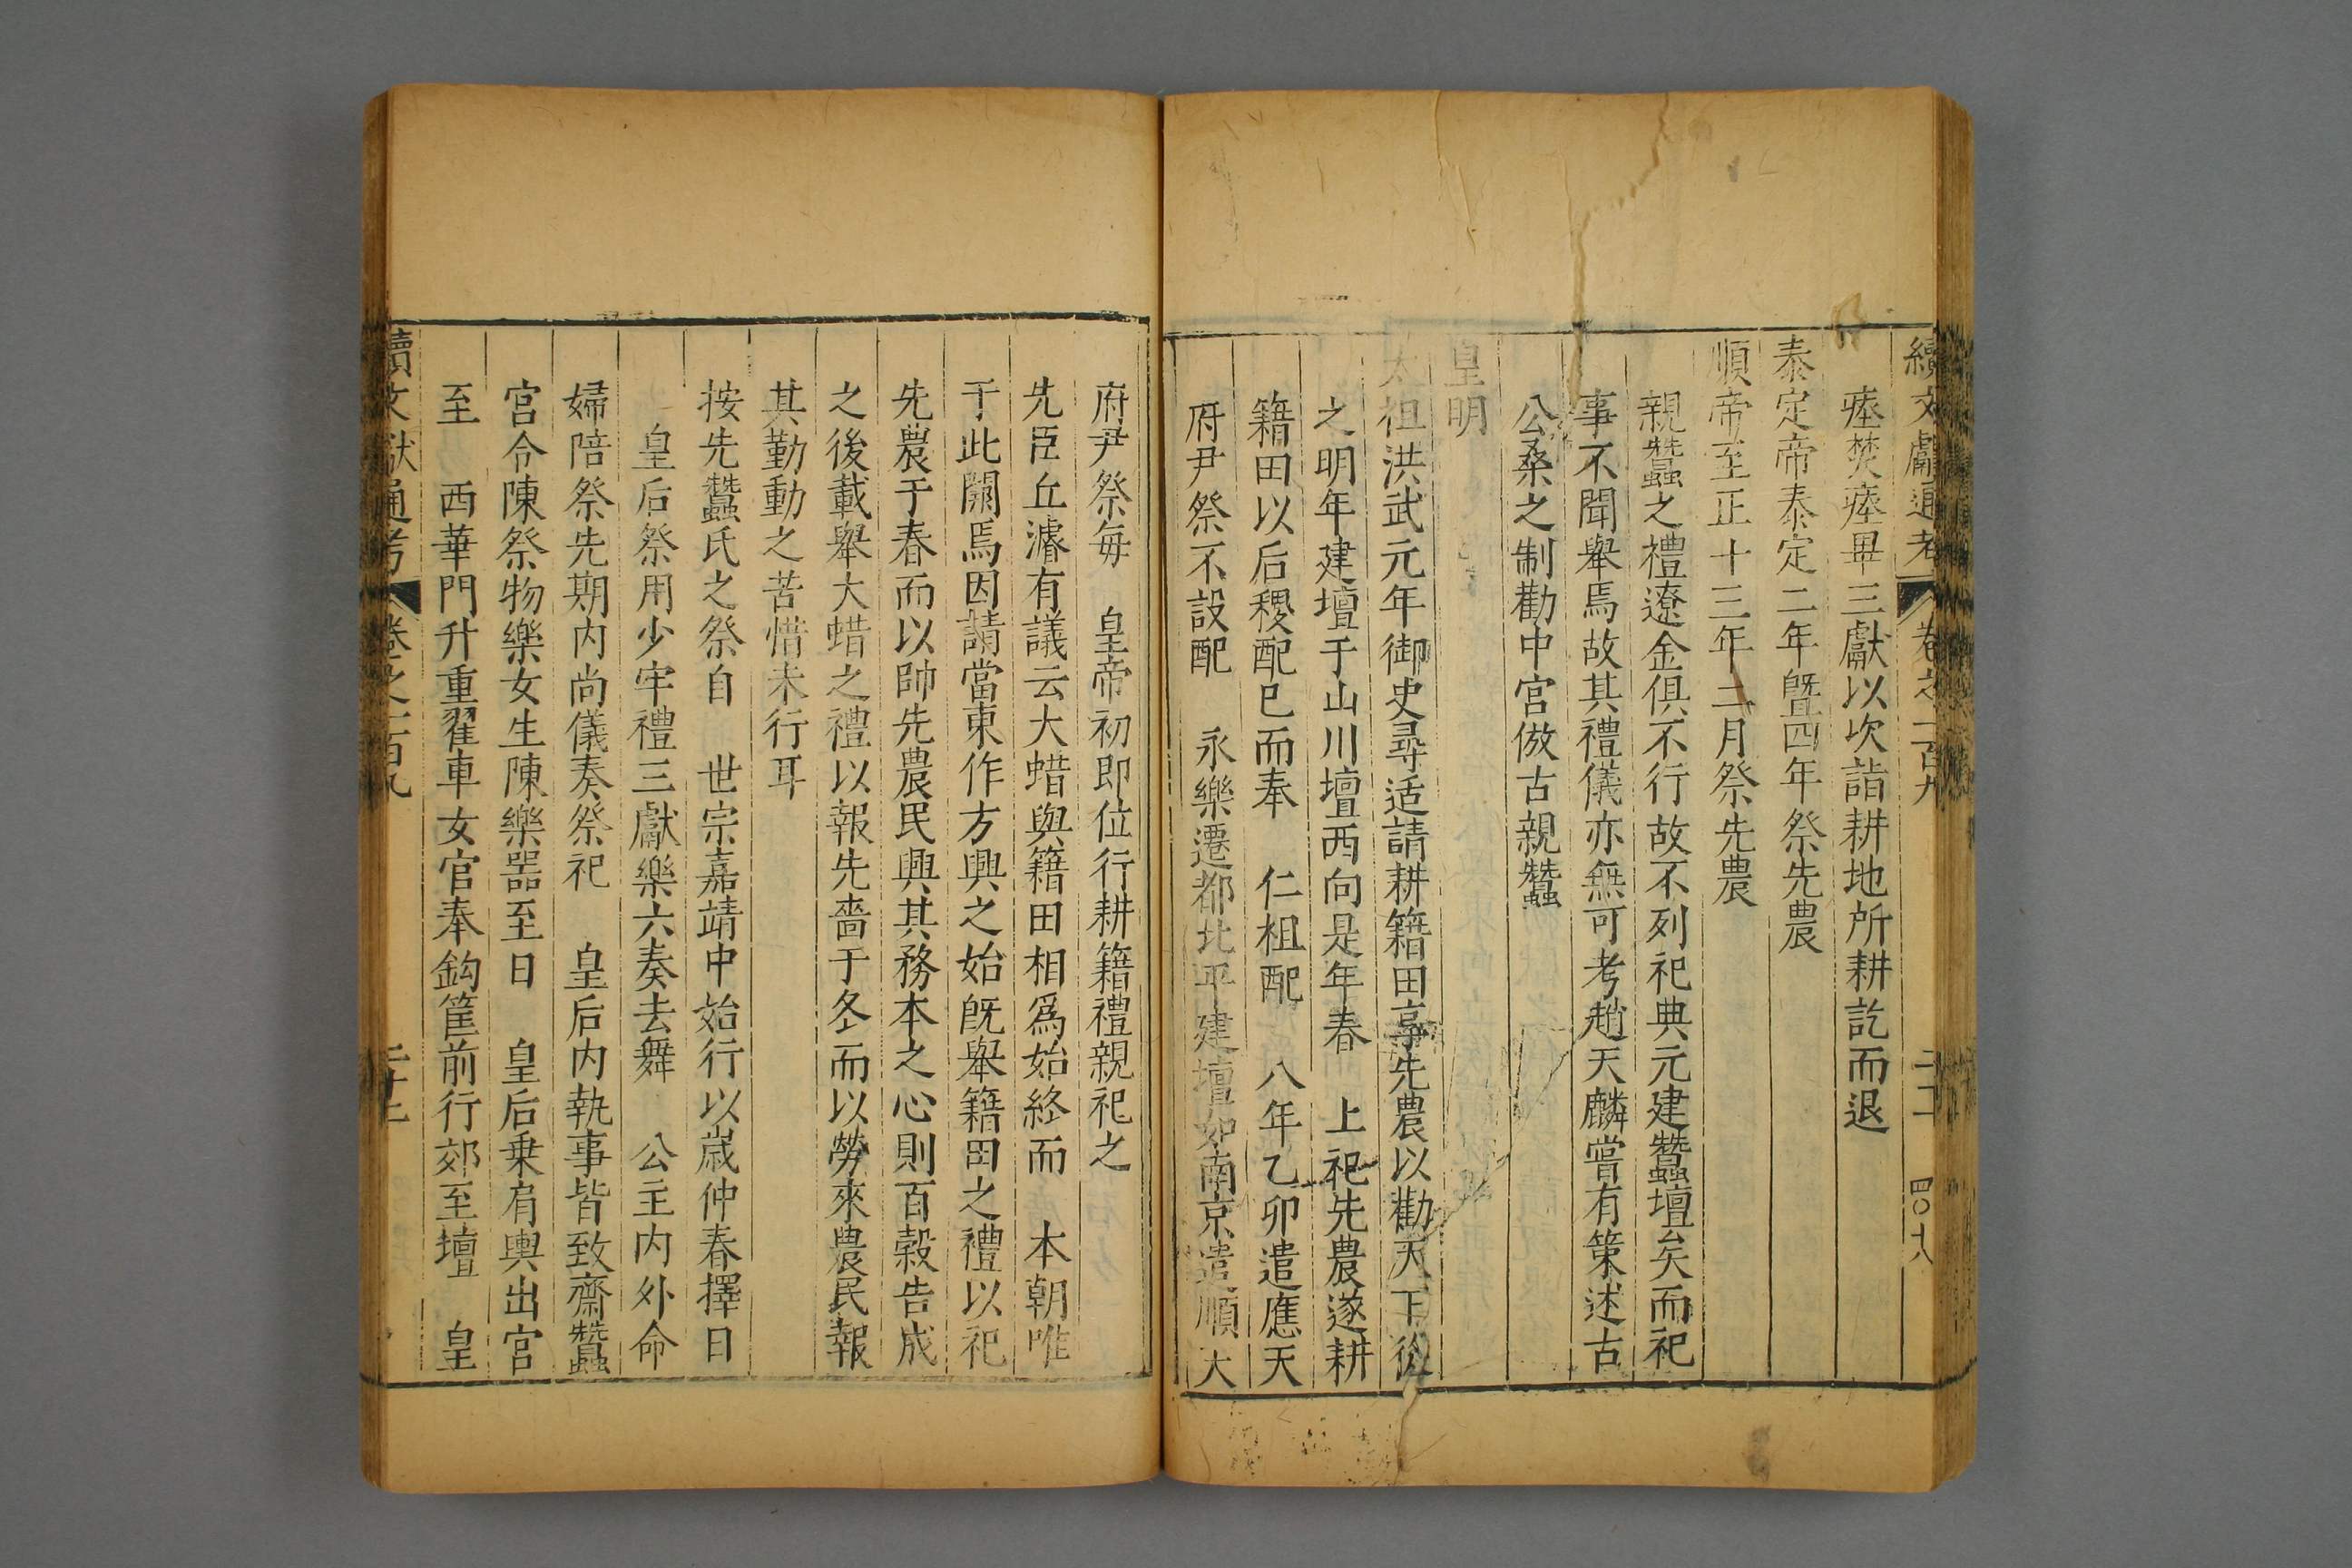 續文獻通考 卷之一百九 四〇十八
瘞焚瘞畢三獻以次詣耕地所耕訖而退
泰定帝泰定二年曁四年祭先農
順帝至正十三年二月祭先農
親蠶之禮遼金俱不行故不列祀典元建蠶壇矣而祀
事不聞舉焉故其禮儀亦無可考趙天麟嘗有策述古
公桑之制勸中宮倣古親蠶
皇明
太祖洪武元年御史尋适請耕籍田享先農以勸天下後
之明年建壇于山川壇西向是年春 上祀先農遂耕
籍田以后稷配已而奉 仁祖配 八年乙卯遣應天
府尹祭不設配 永樂遷都北平建壇如南京遣順大
府尹祭毎 皇帝初即位行耕籍禮親祀之
先臣丘濬有議云大蜡與籍田相爲始終而 本朝唯
于此闕焉因請當東作方興之始旣舉籍田之禮以祀
先農于春而以帥先農民興其務本之心則百穀告成
之後載舉大蜡之禮以報先嗇于冬而以勞來農民報
其勤動之苦惜未行耳
按先蠶氏之祭自 世宗嘉靖中始行以歲仲春擇日
皇后祭用少牢禮三獻樂六奏去舞 公主内外命
婦陪祭先期内尚儀奏祭祀 皇后内執事皆致齋蠶
宮令陳祭物樂女生陳樂器至日 皇后乗肩輿出宮
至 西華門升重翟車女官奉鈎筐前行郊至壇 皇
續文獻通考 卷之一百九